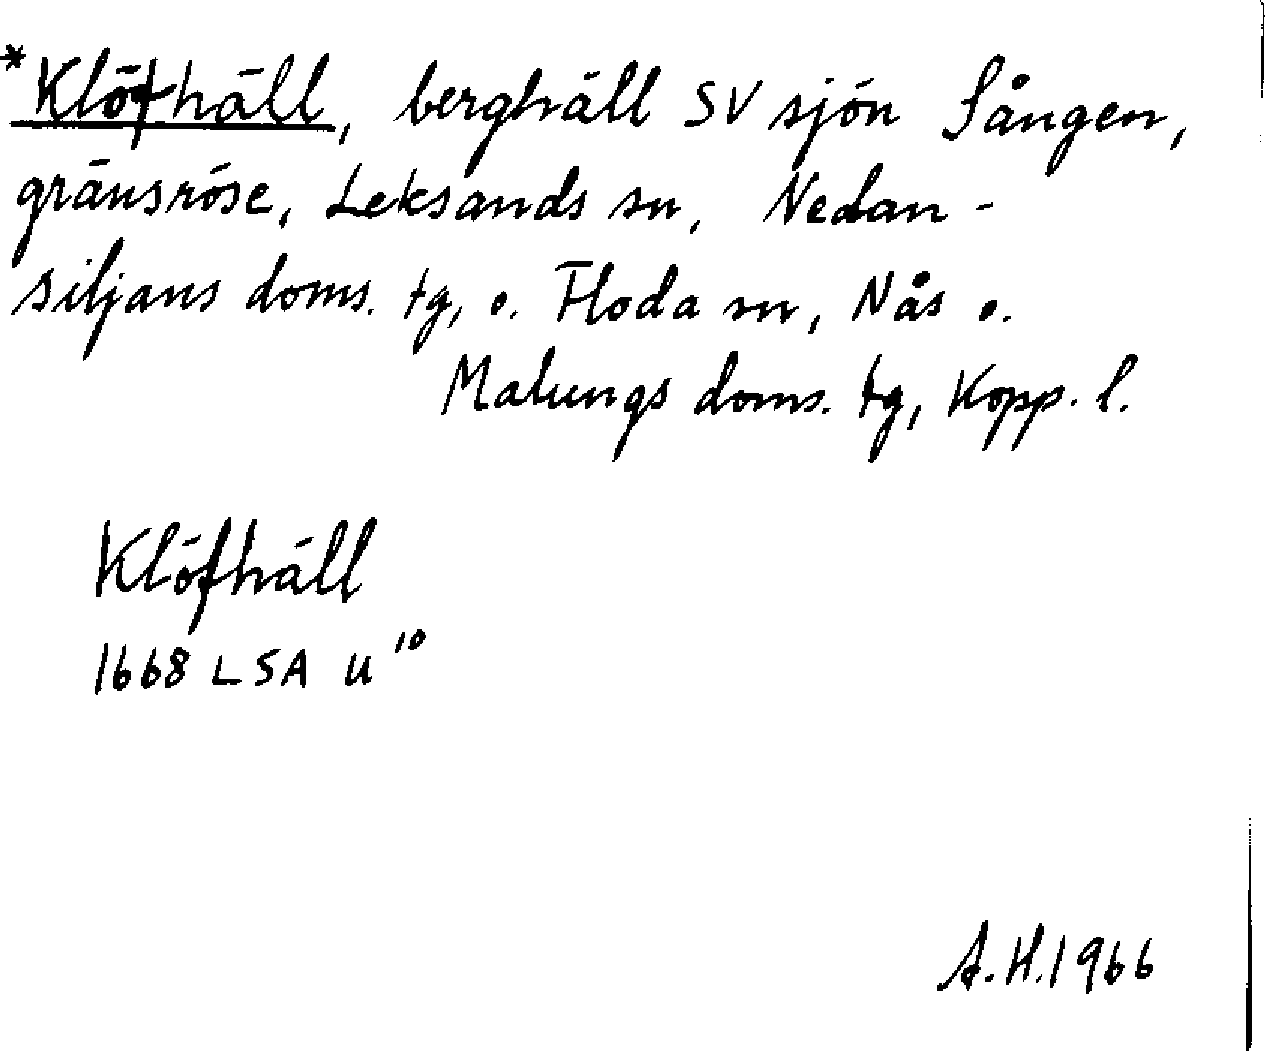 *Klöfhäll, berghäll SV sjön Sången,
gränsröse, Leksands sn, Nedan-
siljans doms. tg, o. Floda sn, Nås o.
Malungs doms. tg, Kopp. l.
Klöfhäll
1668 LSA U¹⁰
A.H.1966